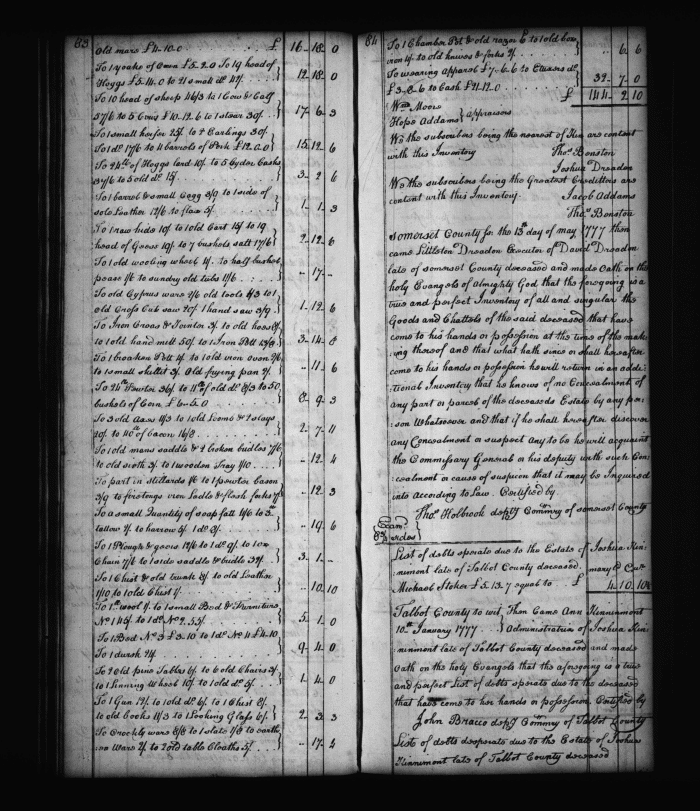 83
Old mare £4-10-0 £ 16-18-0
To 1 yoake of Oxen £5-2-0 To 19 head of
Hoggs £5-14-0 to 21 small do 42/. } 12-18-0
To 10 head of sheep 46/3 to 1 Cow & Calf
57/6 to 5 Cows £10-12-6 to 1 steer 30/. } 17-6-3
To 1 small heifer 25/. to 2 Earlings 30/.
To 1 do 17/6 to 4 barrels of Pork £12.0.0 } 15.12.6
To 24 lb of Hoggs lard 10/. to 5 Cyder Casks
37/6 to 5 old do 15/. } 3-2-6
To 1 barrel & small Cagg 3/9 to 1 side of
sole Leather 12/6 to flax 5/. } 1-1-3
To 1 raw hide 10/. to 1 old Cart 15/ to 19
head of Geese 19/. to 7 bushels salt 17/6 } 2-12-6
To 1 old wooling wheel 4/. to half bushel
pease 1/6 to sundry old tubs 11/6 } -17-
To old Cyprus ware 2/6 old tools 4/3 to 1
old Cross Cut saw 20/. 1 hand saw 3/9 } 1-12-6
To Iron Cross & Jointer 3/. to old hoes
to 1 old hand mill 50/. to 1 Iron Pott 13/9 } 3-14-8
To 1 broaken Pott 4/. to 1 old iron oven 2/6
to 1 small skillet 3/. Old frying pan 2/. } -11-6
To 24 lb Pewter 36/. to 11 lb of old do 8/3 to 50
bushels of Corn £6-5-0 } 8-9-3
To 3 old Axes 11/3 to 1 old Loomb & 2 slays
20/. to 40 lb of bacon 16/8 } 2-7-11
To 1 old mans saddle & 2 broken bridles 7/6
to old sieth 3/. to 1 wooden Tray 1/10 } -12-4
To part in stillards 1/6 to 1 pewter bason
3/9 to fire tongs iron Ladle & flesh forks 7/ } -12-3
To a small Quantity of soap fatt 1/6 to
tallow 2/. to harrow 5/. 1 do 8/. } -19-6
To 1 Plough & geers 12/6 to 1 do 9/. to 1 ox
Chain 7/6 to 1 side saddle & bridle 32/. } 3-1-
To 1 Chest & old trunk 8/ to old Leather
1/10 to 1 old Chest 1/. } -10-10
To 7 lb wool 7/. to 1 small Bed & Furniture
No 1 45/. to 1 do No 2. 55/. } 5-1-0
To 1 Bed No 3 £3.10 to 1 do No 4 £4.10
To 1 dursk 24/. } 9-4-0
To 2 Old pine Tables 6/. to 6 old Chairs 3/.
to 1 Linning Wheel 10/. to 1 old do 5/. } 1-4-0
To 1 Gun 12/. to 1 old do 6/. to 1 Chest 8/.
to old books 11/3 to 1 Looking Glass 6/. } 2-3-3
To Crockery ware 8/8 to 1 slate 1/8 to earth
:en Ware 2/. to 2 old table Cloaths 5/. } -17-4
84
To 1 Chamber Pot & old razor 6 to 1 old box
iron 4/- to old knives & forks 2/. } -6-6
To wearing Apparel £7-6-6 to Etuxers do
£3-8-6 to Cash £21-12-0 } 32-7-0
£ 144-2 10
Wm Moore
Hope Addams } Appraisers
We the subscribers being the nearest of Kin are content
with this Inventory Thos Benston
Joshua Dreadon
We the subscribers being the Greatest Creditors are
content with this Inventory. Jacob Addams
Thos Benston
Somerset County ss. the 13th day of may 1777 then
came Littleton Dreadon Executor of David Dreadon
late of somerset County deceased and made Oath on the
holy Evangels of Almighty God that the foregoing is a
true and perfect Inventory of all and singular the
Goods and Chattels of the said deceased that have
come to his hands or possession at the time of the mak
ing thereof and that what hath since or shall hereafter
come to his hands or possession he will return in an addi
tional Inventory that he knows of no Concealment of
any part or parcel of the deceaseds Estate by any per
son Whatsoever and that if he shall hereafter discover
any Concealment or suspect Any to be he will acquaint
the Commissary General or his deputy with such Con
cealment or cause of suspicion that it may be Inquired
into According to Law. Certified by
Thos Holbrook depty Commry of somerset County
Exam.
List of debts sperate due to the Estate of Joshua Kin:
:nimont late of Talbot County deceased. maryd Cur
Michael Stoker £5.13.7 equal to £ 4.10.10½
Talbot County to wit, Then Came Ann Kinnimont
10th January 1777 } Administratrix of Joshua Kin
:nimont late of Talbot County deceased and made
Oath on the holy Evangels that the aforegoing is a true
and perfect List of debts sperate due to the deceased
that have come to her hands or possession. Certified by
John Bracco depty Commry of Talbot County
List of debts desperate due to the Estate of Joshua
Kinnimont late of Talbot County deceased